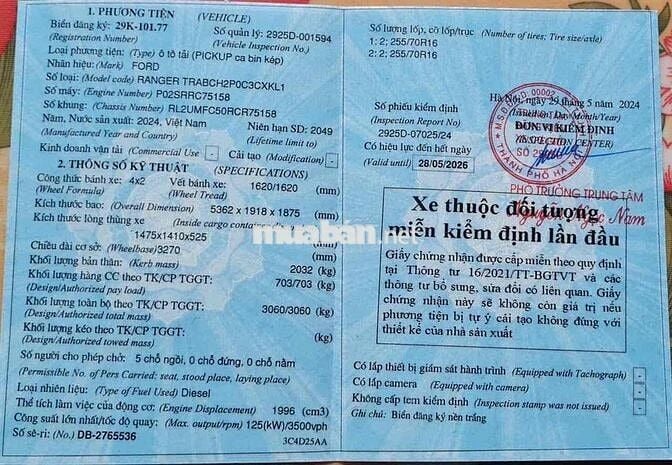 1. PHƯƠNG TIỆN (VEHICLE)
Biển đăng ký: 29K-101.77 Số quản lý: 2925D-001594
(Registration Number) (Vehicle Inspection No.)
Loại phương tiện: (Type) ô tô tải (PICKUP ca bin kép)
Nhãn hiệu: (Mark) FORD
Số loại: (Model code) RANGER TRABCH2P0C3CXKL1
Số máy: (Engine Number) P02SRRC75158
Số khung: (Chassis Number) RL2UMFC50RCR75158
Năm, Nước sản xuất: 2024, Việt Nam Niên hạn SD: 2049
(Manufactured Year and Country) (Lifetime limit to)
Kinh doanh vận tải (Commercial Use) - Cải tạo (Modification) -
2. THÔNG SỐ KỸ THUẬT (SPECIFICATIONS)
Công thức bánh xe: 4x2 Vết bánh xe: 1620/1620 (mm)
(Wheel Formula) (Wheel Tread)
Kích thước bao: (Overall Dimension) 5362 x 1918 x 1875 (mm)
Kích thước lòng thùng xe (Inside cargo container
1475x1410x525 (mm)
Chiều dài cơ sở: (Wheelbase) 3270 (mm)
Khối lượng bản thân: (Kerb mass) 2032 (kg)
Khối lượng hàng CC theo TK/CP TGGT: 703/703 (kg)
(Design/Authorized pay load)
Khối lượng toàn bộ theo TK/CP TGGT: 3060/3060 (kg)
(Design/Authorized total mass)
Khối lượng kéo theo TK/CP TGGT: (kg)
(Design/Authorized towed mass)
Số người cho phép chở: 5 chỗ ngồi, 0 chỗ đứng, 0 chỗ nằm
(Permissible No. of Pers Carried: seat, stood place, laying place)
Loại nhiên liệu: (Type of Fuel Used) Diesel
Thể tích làm việc của động cơ: (Engine Displacement) 1996 (cm3)
Công suất lớn nhất/tốc độ quay: (Max. output/rpm) 125(kW)/3500vph
Số sê-ri: (No.) DB-2765536 3C4D25AA
Số lượng lốp, cỡ lốp/trục (Number of tires; Tire size/axle)
1: 2; 255/70R16
2: 2; 255/70R16
Hà Nội, ngày 29 tháng 5 năm 2024
(Issued on: Day/Month/Year)
Số phiếu kiểm định ĐƠN VỊ KIỂM ĐỊNH
(Inspection Report No) (INSPECTION CENTER)
2925D-07025/24
Có hiệu lực đến hết ngày
(Valid until) 28/05/2026
THÀNH PHỐ HÀ NỘI
PHÓ TRƯỞNG TRUNG TÂM
Nam
Xe thuộc đối tượng
miễn kiểm định lần đầu
Giấy chứng nhận được cấp miễn theo quy định
tại Thông tư 16/2021/TT-BGTVT và các
thông tư bổ sung, sửa đổi có liên quan. Giấy
chứng nhận này sẽ không còn giá trị nếu
phương tiện bị tự ý cải tạo không đúng với
thiết kế của nhà sản xuất
Có lắp thiết bị giám sát hành trình (Equipped with Tachograph) -
Có lắp camera (Equipped with camera) -
Không cấp tem kiểm định (Inspection stamp was not issued) -
Ghi chú: Biển đăng ký nền trắng
muaban.net